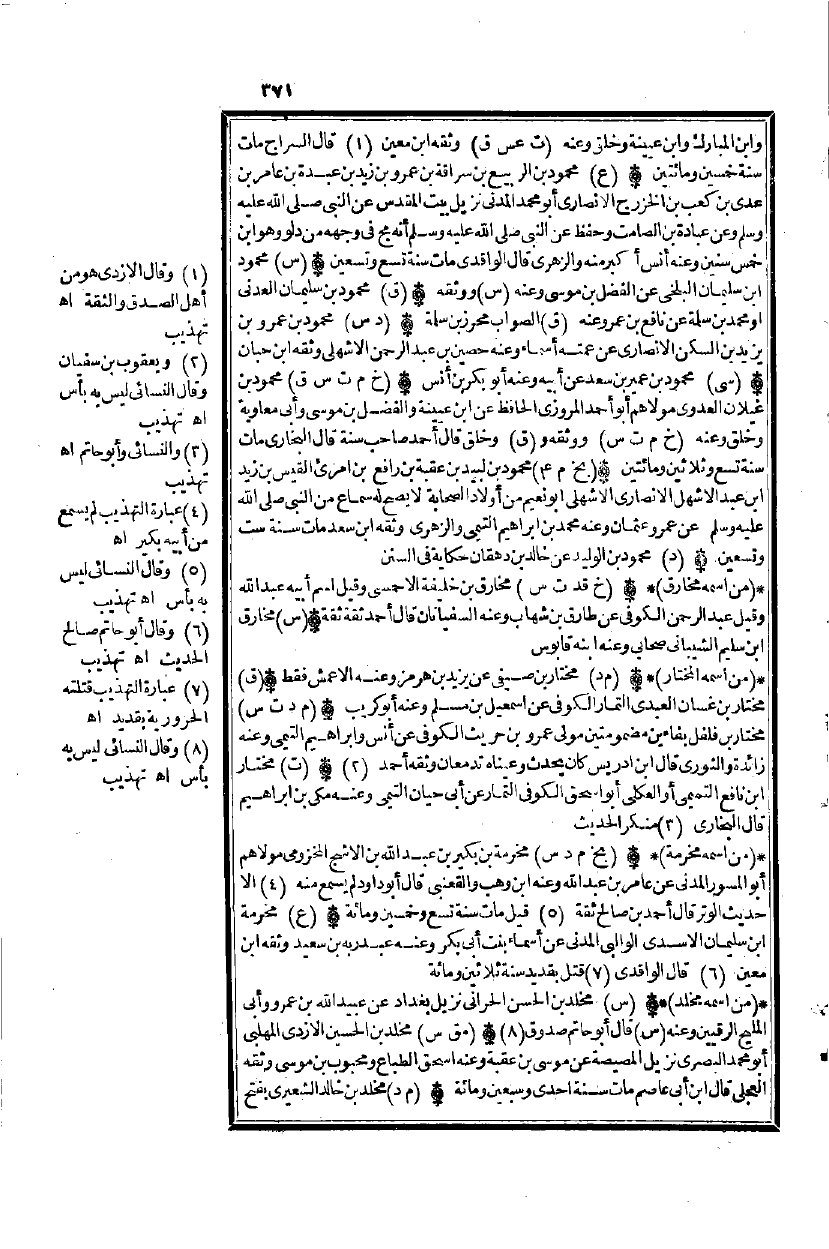 ٣٧١
وابن المبارك وابن عيينة وخلق وعنه (ت عس ق) وثقه ابن معين (١) قال السراج مات
سنة خمسين ومائتين ۞ (ع) محمود بن الربيع بن سراقة بن عمرو بن زيد بن عبدة بن عامر بن
عدى بن كعب بن الخزرج الانصارى أبو محمد المدنى نزيل بيت المقدس عن النبى صلى الله عليه
وسلم وعن عبادة بن الصامت وحفظ عن النبى صلى الله عليه وسلم أنه مج فى وجهه من دلو وهو ابن
خمس سنين وعنه أنس أكبر منه والزهرى قال الواقدى مات سنة تسع وتسعين ۞ (س) محمود
ابن سليمان البلخى عن الفضل بن موسى وعنه (س) ووثقه ۞ (ق) محمود بن سليمان العدنى
او محمد بن سلة عن نافع بن عمر وعنه (ق) الصواب محرز بن سلة ۞ (د س) محمود بن عمرو بن
يزيد بن السكن الانصارى عن عمته أسماء وعنه حصين بن عبد الرحمن الاشهلى وثقه ابن حبان
۞ (سى) محمود بن عمير بن سعد عن أبيه وعنه أبو بكر بن أنس ۞ (خ م ت س ق) محمود بن
غيلان العدوى مولاهم أبو أحمد المروزى الحافظ عن ابن عيينة والفضل بن موسى وأبى معاوية
وخلق وعنه (خ م ت س) ووثقه و(ق) وخلق قال أحمد صاحب سنة قال البخارى مات
سنة تسع وثلاثين ومائتين ۞ (بخ م ٤) محمود بن لبيد بن عقبة بن رافع بن امرئ القيس بن زيد
ابن عبد الاشهل الانصارى الاشهلى ابو نعيم من أولاد الصحابة لا يصح له سماع من النبى صلى الله
عليه وسلم عن عمر وعثمان وعنه محمد بن ابراهيم التيمى والزهرى وثقه ابن سعد مات سنة ست
وتسعين ۞ (د) محمود بن الوليد عن خالد بن دهقان حكاية فى السنن
*(من اسمه مخارق)* ۞ (خ قد ت س) مخارق بن خليفة الاحمسى وقيل اسم أبيه عبد الله
وقيل عبد الرحمن الكوفى عن طارق بن شهاب وعنه السفيانان قال أحمد ثقة ثقة ۞ (س) مخارق
ابن سليم الشيبانى صحابى وعنه ابنه قابوس
*(من اسمه المختار)* ۞ (م د) مختار بن صيفى عن يزيد بن هرمز وعنه الاعمش فقط ۞ (ق)
مختار بن غسان العبدى التمار الكوفى عن اسمعيل بن مسلم وعنه أبو كريب ۞ (م د ت س)
مختار بن فلفل بفاءين مضمومتين مولى عمرو بن حريث الكوفى عن أنس وابراهيم التيمى وعنه
زائدة والثورى قال ابن ادريس كان يحدث وعيناه تدمعان وثقه أحمد (٢) ۞ (ت) مختار
ابن نافع التميمى أو العكلى أبو اسحق الكوفى التمار عن أبى حيان التيمى وعنه مكى بن ابراهيم
قال البخارى (٣) منكر الحديث
*(من اسمه مخرمة)* ۞ (بخ م د س) مخرمة بن بكير بن عبد الله بن الاشج المخزومى مولاهم
أبو المسور المدنى عن عامر بن عبد الله وعنه ابن وهب والقعنبى قال أبو داود لم يسمع منه (٤) الا
حديث الوتر قال أحمد بن صالح ثقة (٥) قيل مات سنة تسع وخمسين ومائة ۞ (ع) مخرمة
ابن سليمان الاسدى الوالبى المدنى عن أسماء بنت أبى بكر وعنه عبد ربه بن سعيد وثقه ابن
معين (٦) قال الواقدى (٧) قتل بقديد سنة ثلاثين ومائة
*(من اسمه مخلد)* ۞ (س) مخلد بن الحسن الحرانى نزيل بغداد عن عبيد الله بن عمرو وأبى
المليح الرقيين وعنه (س) قال أبو حاتم صدوق (٨) ۞ (مق س) مخلد بن الحسين الازدى المهلبى
أبو محمد البصرى نزيل المصيصة عن موسى بن عقبة وعنه اسحق الطباع ومحبوب بن موسى وثقه
العجلى قال ابن أبى عاصم مات سنة احدى وسبعين ومائة ۞ (م د) مخلد بن خالد الشعيرى بفتح
(١) وقال الازدى هو من
أهل الصدق والثقة اه
تهذيب
(٢) ويعقوب بن سفيان
وقال النسائى ليس به بأس
اه تهذيب
(٣) والنسائى وأبو حاتم اه
تهذيب
(٤) عبارة التهذيب لم يسمع
من أبيه بكير اه
(٥) وقال النسائى ليس
به بأس اه تهذيب
(٦) وقال أبو حاتم صالح
الحديث اه تهذيب
(٧) عبارة التهذيب قتلته
الحرورية بقديد اه
(٨) وقال النسائى ليس به
بأس اه تهذيب